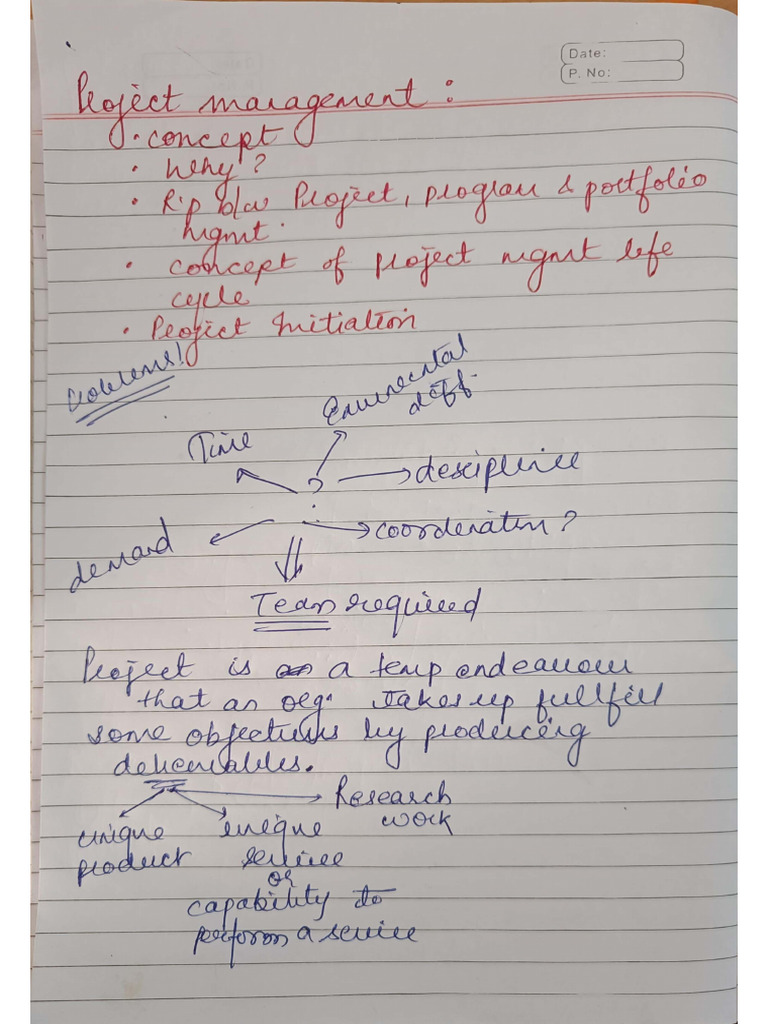 Date:
P. No:
Project management:
• concept
• Why?
• R'p b/w Project, program & portfolio
mgmt.
• concept of project mgmt life
cycle
• Project Initiation
Problems!
Time
diff.
? → descipline
demand
coordination?
Team required
Project is a temp endeavour
that an org. takes up fullfill
some objectives by producing
deliverables.
Research
work
unique
product
unique
service
or
capability to
perform a service